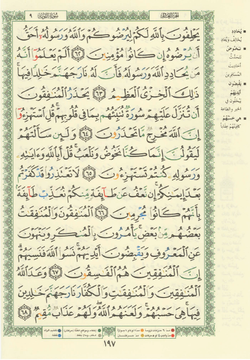 يَحْلِفُونَ بِاللَّهِ لَكُمْ لِيُرْضُوكُمْ وَاللَّهُ وَرَسُولُهُ أَحَقُّ
أَن يُرْضُوهُ إِن كَانُوا مُؤْمِنِينَ ٦٢ أَلَمْ يَعْلَمُوا أَنَّهُ
مَن يُحَادِدِ اللَّهَ وَرَسُولَهُ فَأَنَّ لَهُ نَارَ جَهَنَّمَ خَٰلِدًا فِيهَا
ذَٰلِكَ الْخِزْيُ الْعَظِيمُ ٦٣ يَحْذَرُ الْمُنَٰفِقُونَ
أَن تُنَزَّلَ عَلَيْهِمْ سُورَةٌ تُنَبِّئُهُم بِمَا فِي قُلُوبِهِمْ قُلِ اسْتَهْزِءُوا
إِنَّ اللَّهَ مُخْرِجٌ مَّا تَحْذَرُونَ ٦٤ وَلَئِن سَأَلْتَهُمْ
لَيَقُولُنَّ إِنَّمَا كُنَّا نَخُوضُ وَنَلْعَبُ قُلْ أَبِاللَّهِ وَءَايَٰتِهِ
وَرَسُولِهِ كُنتُمْ تَسْتَهْزِءُونَ ٦٥ لَا تَعْتَذِرُوا قَدْ كَفَرْتُم
بَعْدَ إِيمَٰنِكُمْ إِن نَّعْفُ عَن طَائِفَةٍ مِّنكُمْ نُعَذِّبْ طَائِفَةً
بِأَنَّهُمْ كَانُوا مُجْرِمِينَ ٦٦ الْمُنَٰفِقُونَ وَالْمُنَٰفِقَٰتُ
بَعْضُهُم مِّن بَعْضٍ يَأْمُرُونَ بِالْمُنكَرِ وَيَنْهَوْنَ
عَنِ الْمَعْرُوفِ وَيَقْبِضُونَ أَيْدِيَهُمْ نَسُوا اللَّهَ فَنَسِيَهُمْ
إِنَّ الْمُنَٰفِقِينَ هُمُ الْفَٰسِقُونَ ٦٧ وَعَدَ اللَّهُ
الْمُنَٰفِقِينَ وَالْمُنَٰفِقَٰتِ وَالْكُفَّارَ نَارَ جَهَنَّمَ خَٰلِدِينَ
فِيهَا هِيَ حَسْبُهُمْ وَلَعَنَهُمُ اللَّهُ وَلَهُمْ عَذَابٌ مُّقِيمٌ ٦٨
١٩٧